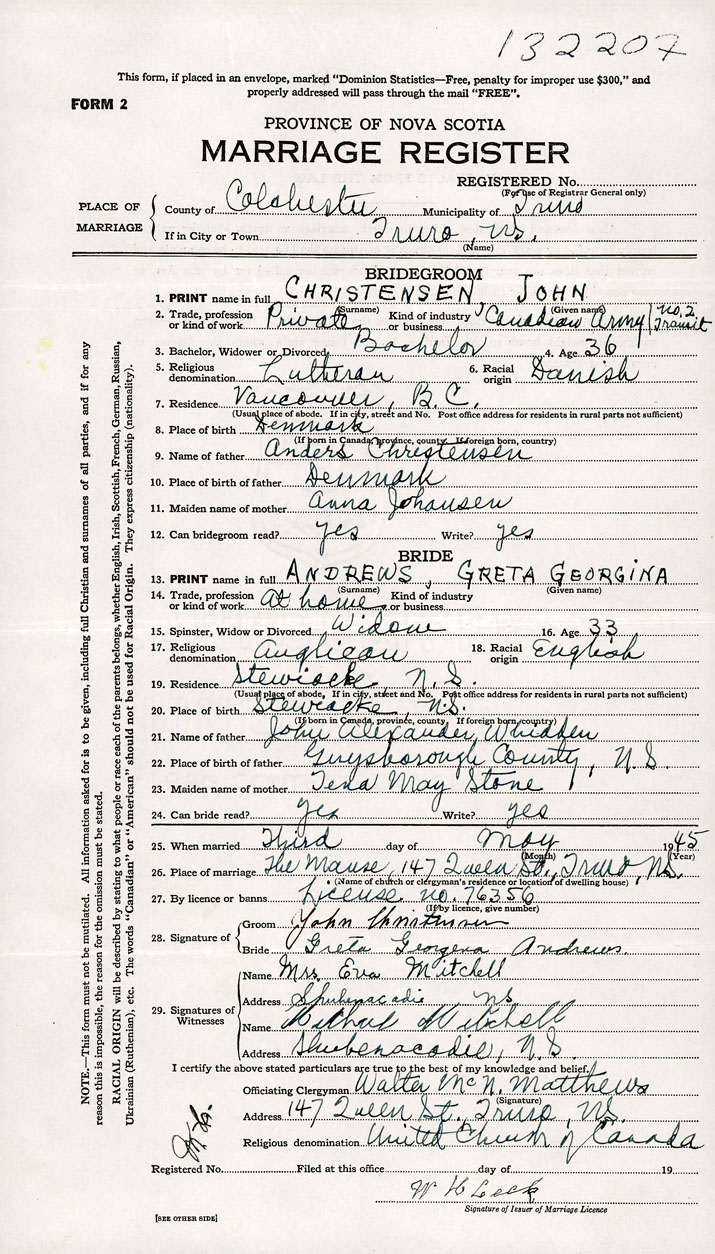 132207
This form, if placed in an envelope, marked "Dominion Statistics—Free, penalty for improper use $300," and
properly addressed will pass through the mail "FREE".
FORM 2
PROVINCE OF NOVA SCOTIA
MARRIAGE REGISTER
REGISTERED No.
(For use of Registrar General only)
PLACE OF MARRIAGE
County of Colchester Municipality of Truro
If in City or Town Truro, N.S.
(Name)
BRIDEGROOM
1. PRINT name in full CHRISTENSEN JOHN
(Surname) (Given name)
2. Trade, profession or kind of work Private Kind of industry or business Canadian Army No. 2 Transit
3. Bachelor, Widower or Divorced Bachelor 4. Age 36
5. Religious denomination Lutheran 6. Racial origin Danish
7. Residence Vancouver, B.C.
(Usual place of abode. If in city, street and No. Post office address for residents in rural parts not sufficient)
8. Place of birth Denmark
(If born in Canada, province, county. If foreign born, country)
9. Name of father Anders Christensen
10. Place of birth of father Denmark
11. Maiden name of mother Anna Johansen
12. Can bridegroom read? yes Write? yes
BRIDE
13. PRINT name in full ANDREWS, GRETA GEORGINA
(Surname) (Given name)
14. Trade, profession or kind of work at home Kind of industry or business
15. Spinster, Widow or Divorced Widow 16. Age 33
17. Religious denomination Anglican 18. Racial origin English
19. Residence Stewiacke N.S.
(Usual place of abode. If in city, street and No. Post office address for residents in rural parts not sufficient)
20. Place of birth Stewiacke, N.S.
(If born in Canada, province, county. If foreign born, country)
21. Name of father John Alexander Whidden
22. Place of birth of father Guysborough County, N.S.
23. Maiden name of mother Tena May Stone
24. Can bride read? yes Write? yes
25. When married Third day of May 1945
(Month) (Year)
26. Place of marriage The Manse, 147 Queen St., Truro, N.S.
(Name of church or clergyman's residence or location of dwelling house)
27. By licence or banns License no. 76356
(If by licence, give number)
28. Signature of
Groom John Christensen
Bride Greta Georgena Andrews.
29. Signatures of Witnesses
Name Mrs. Eva Mitchell
Address Shubenacadie NS
Name Mitchell
Address Shubenacadie, N.S.
I certify the above stated particulars are true to the best of my knowledge and belief.
Officiating Clergyman Walter McN. Matthews
(Signature)
Address 147 Queen St., Truro, N.S.
Religious denomination United Church of Canada
Registered No. Filed at this office day of 19
W H Leck
Signature of Issuer of Marriage Licence
[SEE OTHER SIDE]
NOTE.—This form must not be mutilated. All information asked for is to be given, including full Christian and surnames of all parties, and if for any
reason this is impossible, the reason for the omission must be stated.
RACIAL ORIGIN will be described by stating to what people or race each of the parents belongs, whether English, Irish, Scottish, French, German, Russian,
Ukrainian (Ruthenian), etc. The words "Canadian" or "American" should not be used for Racial Origin. They express citizenship (nationality).